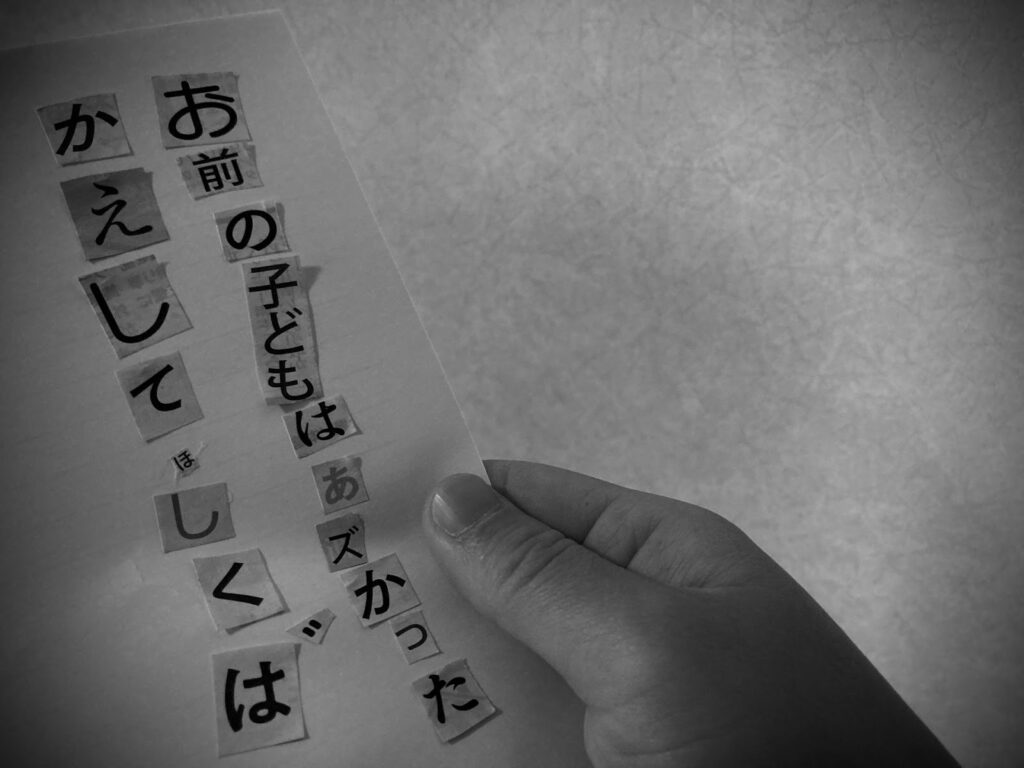 お前の子どもはあズかった
かえしてほしくば